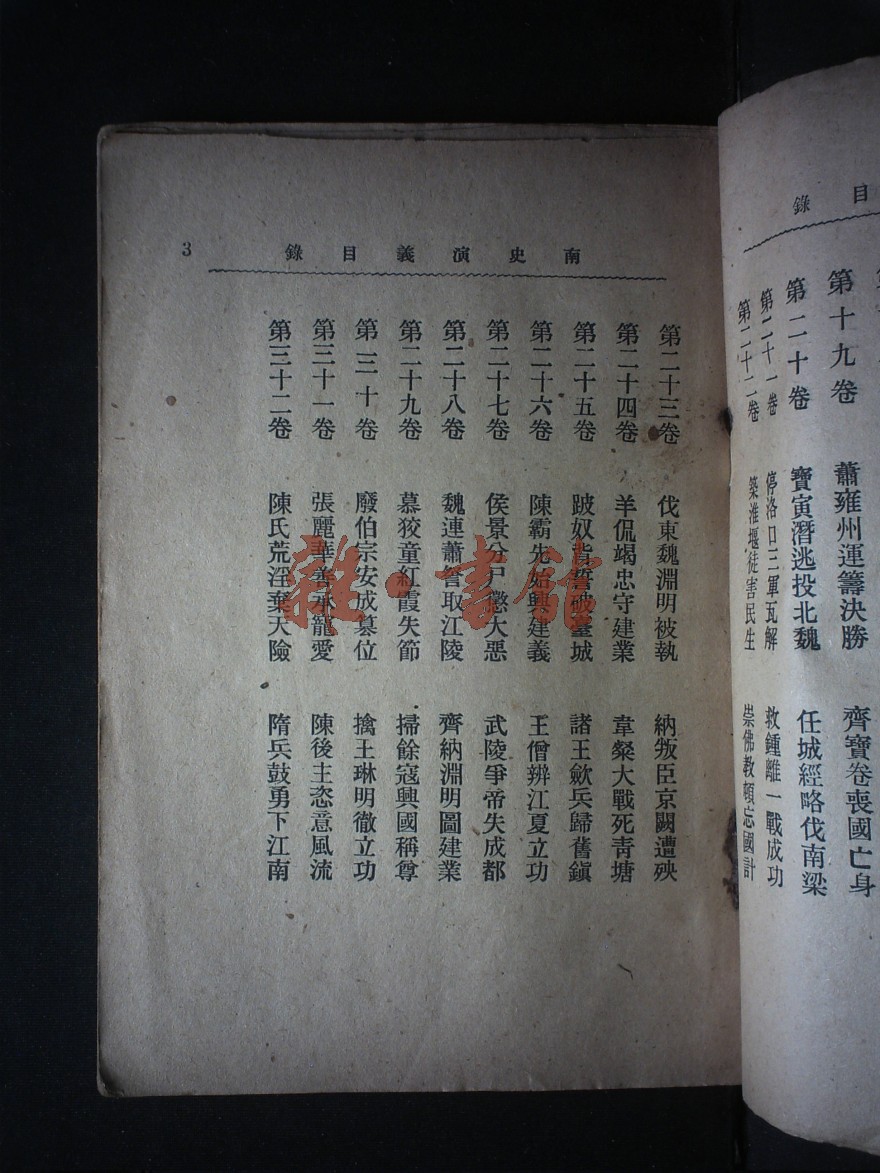 目錄
第十九卷　蕭雍州運籌決勝　齊寶卷喪國亡身
第二十卷　寶寅潛逃投北魏　任城經略伐南梁
第二十一卷　停洛口三軍瓦解　救鍾離一戰成功
第二十二卷　築淮堰徒害民生　崇佛教頓忘國計
南史演義目錄　3
第二十三卷　伐東魏淵明被執　納叛臣京闕遭殃
第二十四卷　羊侃竭忠守建業　韋粲大戰死青塘
第二十五卷　跛奴背誓破臺城　諸王歛兵歸舊鎭
第二十六卷　陳霸先始興建義　王僧辨江夏立功
第二十七卷　侯景分尸懲大惡　武陵爭帝失成都
第二十八卷　魏連蕭詧取江陵　齊納淵明圖建業
第二十九卷　慕狡童紅霞失節　掃餘寇興國稱尊
第三十卷　廢伯宗安成墓位　擒王琳明徹立功
第三十一卷　張麗華善承寵愛　陳後主恣意風流
第三十二卷　陳氏荒淫棄天險　隋兵鼓勇下江南
雜·書館